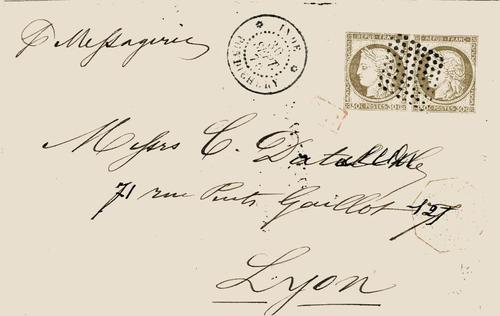 p Messageries
INDE
PONDICHERY
REPUB · FRANC
30 C POSTES 30 C
REPUB · FRANC
30 C POSTES 30 C
Messrs C.
71 rue Puits Gaillot
Lyon